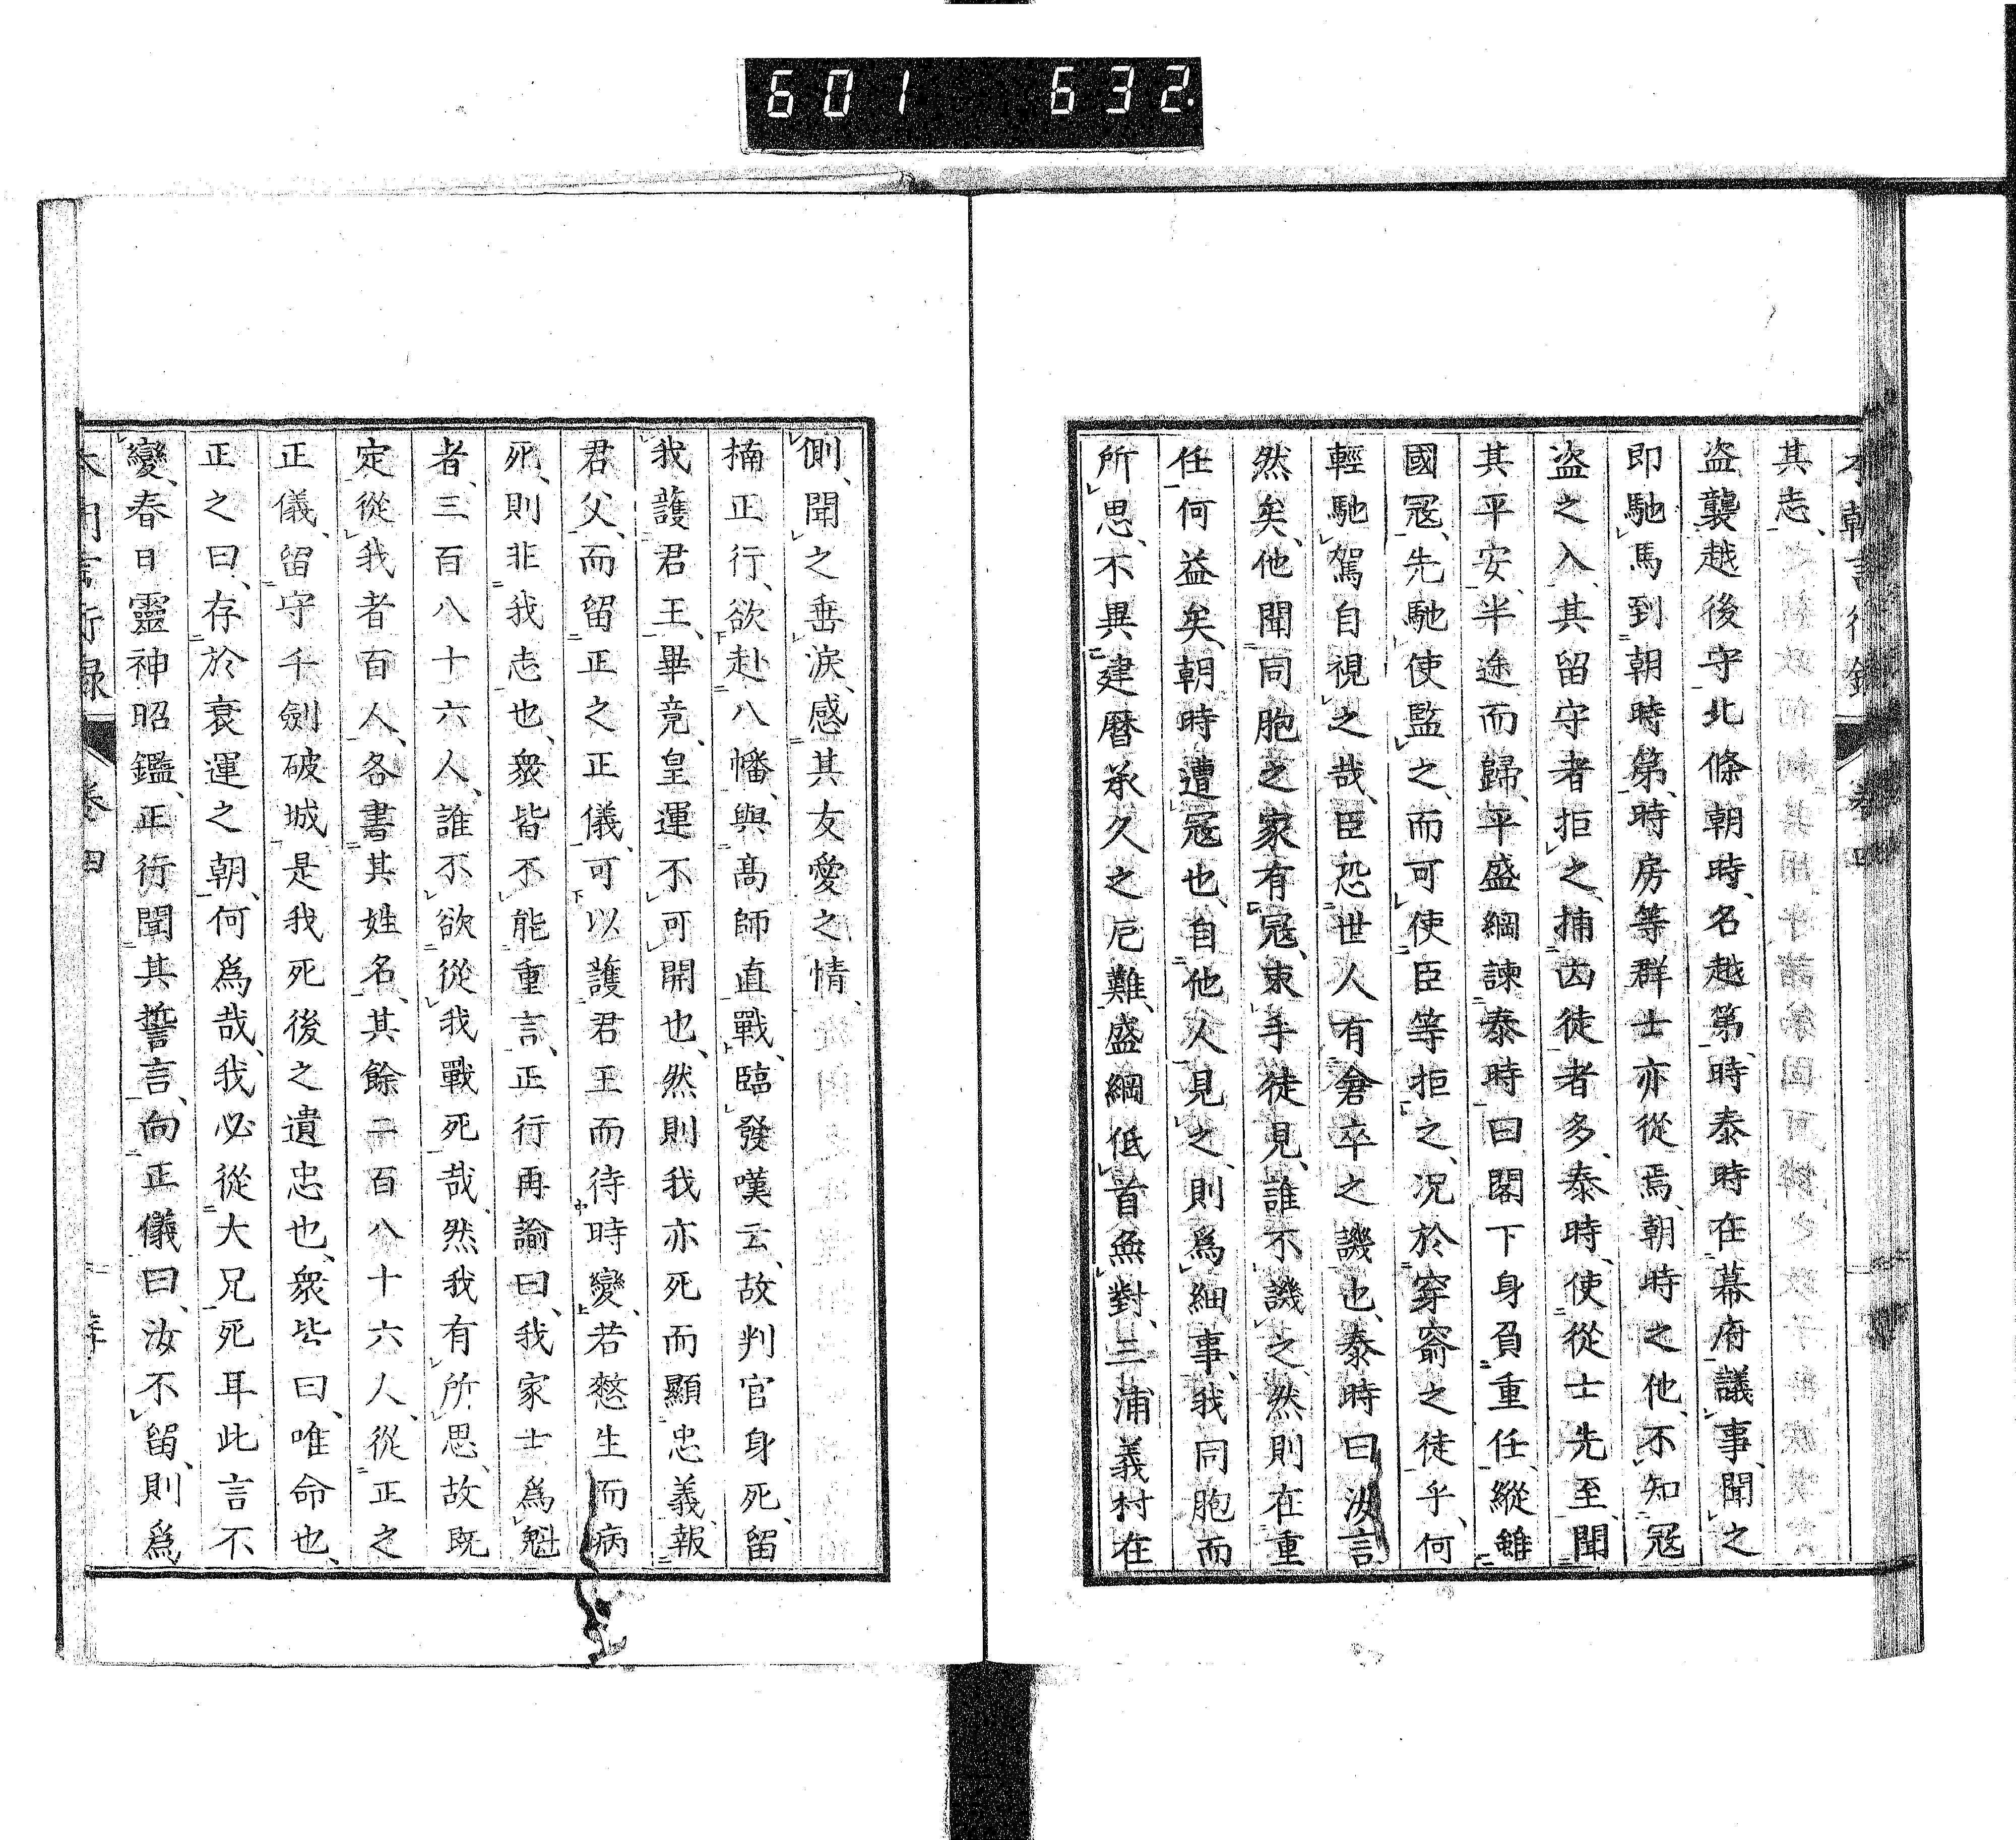 601 632
本朝言行録 卷四
其志、
盜襲越後守北條朝時、名越第、時泰時在幕府議事、聞之
即馳馬到朝時第、時房等群士亦從焉、朝時之他、不知冦
盜之入、其留守者拒之、捕凶徒者多、泰時、使從士先至、聞
其平安、半途而歸、平盛綱諫泰時曰閣下身負重任、縱雖
國冦、先馳使監之、而可使臣等拒之、況於穿窬之徒乎、何
輕馳駕自視之哉、臣恐世人有倉卒之譏也、泰時曰汝言
然矣、他聞同胞之家有冦、束手徒見、誰不譏之、然則在重
任何益矣、朝時遭冦也、自他人見之、則爲細事、我同胞而
所思、不異建曆承久之厄難、盛綱低首無對、三浦義村在
側、聞之垂淚、感其友愛之情、
楠正行、欲赴八幡、與高師直戰、臨發嘆云、故判官身死、留
我護君王、畢竟皇運不可開也、然則我亦死而顯忠義、報
君父、而留正之正儀、可以護君王而待時變、若愁生而病
死、則非我志也、衆皆不能重言、正行再諭曰、我家士爲魁
者、三百八十六人、誰不欲從我戰死哉、然我有所思、故既
定從我者百人、各書其姓名、其餘二百八十六人、從正之
正儀、留守千劒破城、是我死後之遺忠也、衆皆曰、唯命也、
正之曰、存於衰運之朝、何爲哉、我必從大兄死耳此言不
變、春日靈神昭鑑、正行聞其誓言、向正儀曰、汝不留、則爲
本朝言行録 卷四